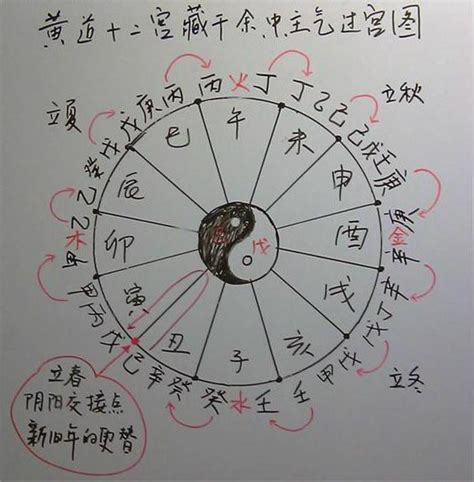 黄道十二宫藏干余中主气过宫图
丙 火 丁 丁 乙 己
立秋
己 戊 壬 庚
金 辛 辛 丁 戊
立冬
戊 甲 壬
壬 水 癸
癸 辛 己
戊 丙 甲
甲 木 乙
乙 癸 戊
立夏
戊 庚 丙
午
未
申
酉
戌
亥
子
丑
寅
卯
辰
巳
戊
立春
阴阳交接点
新旧年的更替